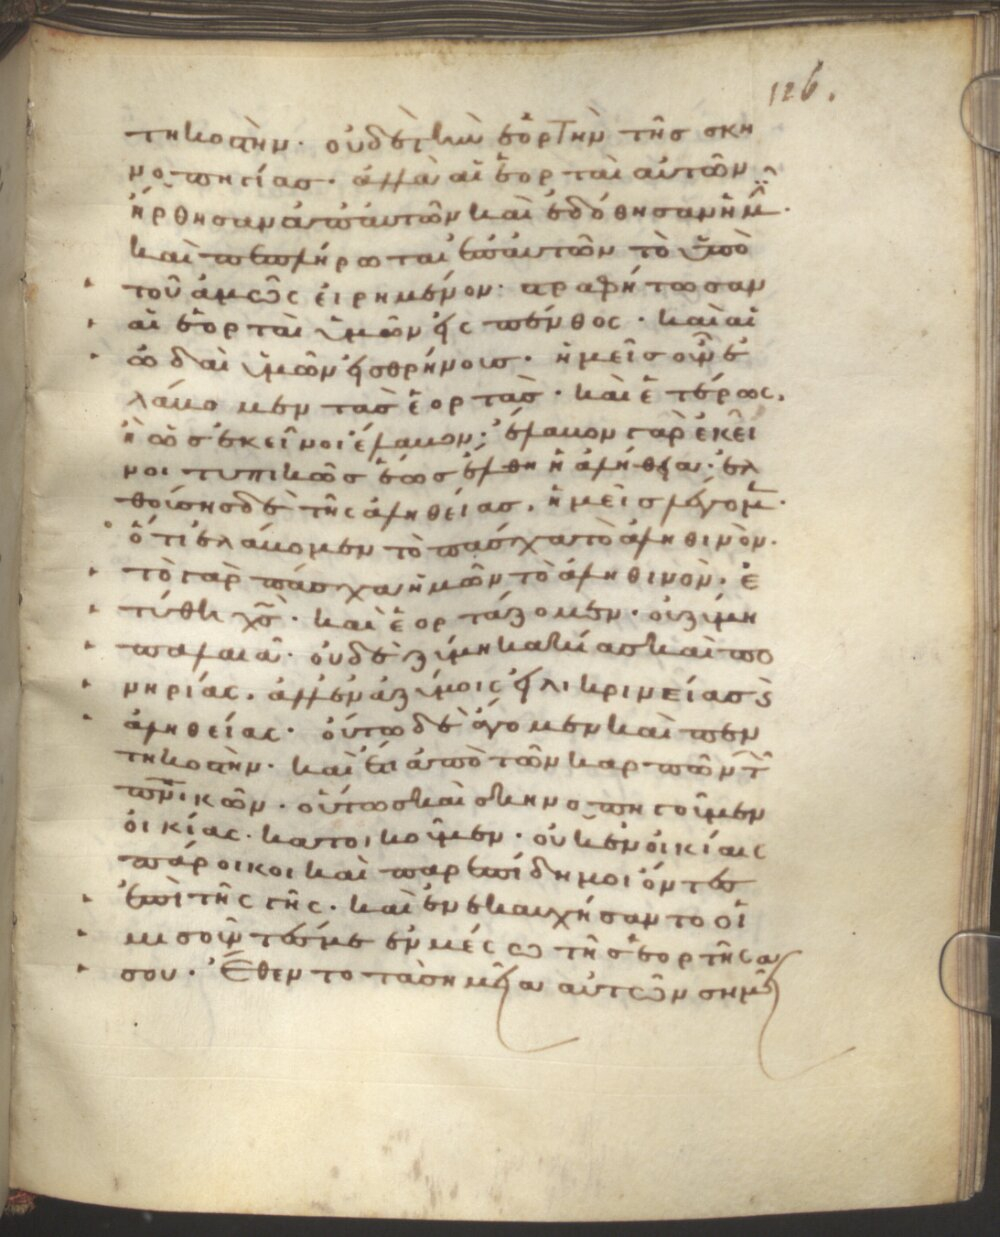 126.
τηκοστὴν· οὐδὲ τὴν ἑορτὴν τῆς σκη
νοπηγίας· ἀλλὰ αἱ ἑορταὶ αὐτῶν
ἤρθησαν ἀπ' αὐτῶν καὶ ἐδόθησαν ἡμῖ·
καὶ πεπλήρωται ἐπ' αὐτῶν τὸ ὑπὸ
τοῦ ἀμὼς εἰρημένον· στραφήτωσαν
αἱ ἑορταὶ ὑμῶν εἰς πένθος· καὶ αἱ
ὠδαὶ ὑμῶν εἰς θρήνοις· ἡμεῖς οὖν ἑ
λάκομεν τὰς ἑορτὰς· καὶ ἑτέρως.
ἢ ὡς ἐκεῖνοι ἔλακον· ἔλακον γὰρ ἐκεῖ
νοι τυπικῶς ἕως ἔλθῃ ἡ ἀλήθεια· ἐλ
θούσης δὲ τῆς ἀληθείας. ἡμεῖς λέγομ·
ὅτι ἑλάκομεν τὸ πάσχα τὸ ἀληθινὸν·
τὸ γὰρ πάσχα ἡμῶν τὸ ἀληθινὸν· ἐ
τύθη χς· καὶ ἑορτάζομεν· οὐ ζύμη
παλαιᾶ· οὐδὲ ζύμη κακίας καὶ πο
νηρίας. ἀλλ' ἐν ἀζύμοις εἰλικρινείας ϗ
ἀληθείας· οὕτω δὲ ἄγομεν καὶ πεν
τηκοστὴν· καὶ ἔτι ἀπὸ τῶν καρπῶν τ
πνικῶν· οὕτως καὶ σκηνοπηγοῦμεν
οἰκίας· κατοικοῦμεν· οὐκ ἐν οἰκίαις
πάροικοι καὶ παρεπίδημοι ὄντες
ἐπὶ τῆς γῆς· καὶ ἐνεκαυχήσαντο οἱ
μισοῦντές με ἐν μέσω τῆς ἑορτῆς
σου· Ἔθεντο τὰ σημεῖα αὐτῶν σημεῖ